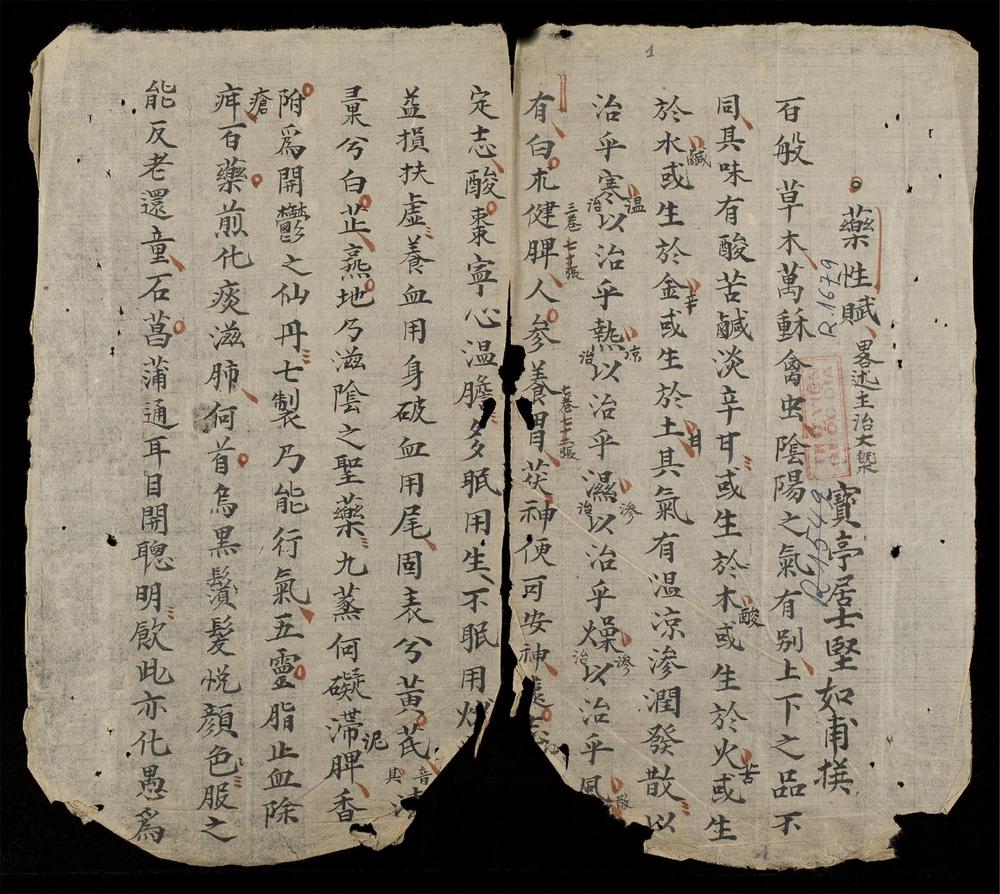 1
藥性賦 畧述主治大槩
R.1679
寳亭居士堅如甫撰
百般草木萬穌禽虫陰陽之氣有别上下之品不
同其味有酸苦鹹淡辛甘或生於木酸或生於火苦或生
於水鹹或生於金辛或生於土甘其氣有温凉渗潤發散以
治乎寒温治以治乎熱凉治以治乎濕渗治以治乎燥渗治以治乎風散
有白朮健脾三卷七十張人參養胃七卷七十二張茯神便可安神遠志
定志酸棗寧心温膽多眠用生不眠用炒
益損扶虚養血用身破血用尾固表兮黄芪音其
稟兮白芷熹地乃滋陰之聖藥九蒸何礙滯泥脾香
附爲開鬱之仙丹七製乃能行氣五靈脂止血除
疳瘡百藥煎化痰滋肺何首烏黒鬚髮悦顔色服之
能反老還童石菖蒲通耳目開聰明飲此亦化愚爲